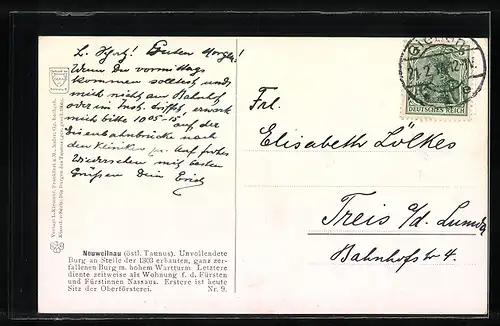 L. Schatz! Guten Morgen!
Wenn Du vormittags
kommen solltest und
mich nicht am Bahnhof
oder im Inst. triffst, erwarte
mich bitte 10 05-15 auf der
Eisenbahnbrücke nach
den Kliniken zu. Auf frohes
Wiedersehen mit besten
Grüßen Dein Erich
Frl.
Elisabeth Lölkes
Treis a/d. Lumda
Bahnhofstr 4.
DEUTSCHES REICH
Neuweilnau (östl. Taunus). Unvollendete
Burg an Stelle der 1303 erbauten, ganz zer-
fallenen Burg m. hohem Wartturm. Letztere
diente zeitweise als Wohnung f. d. Fürsten
und Fürstinnen Nassaus. Erstere ist heute
Sitz der Oberförsterei. Nr. 9.